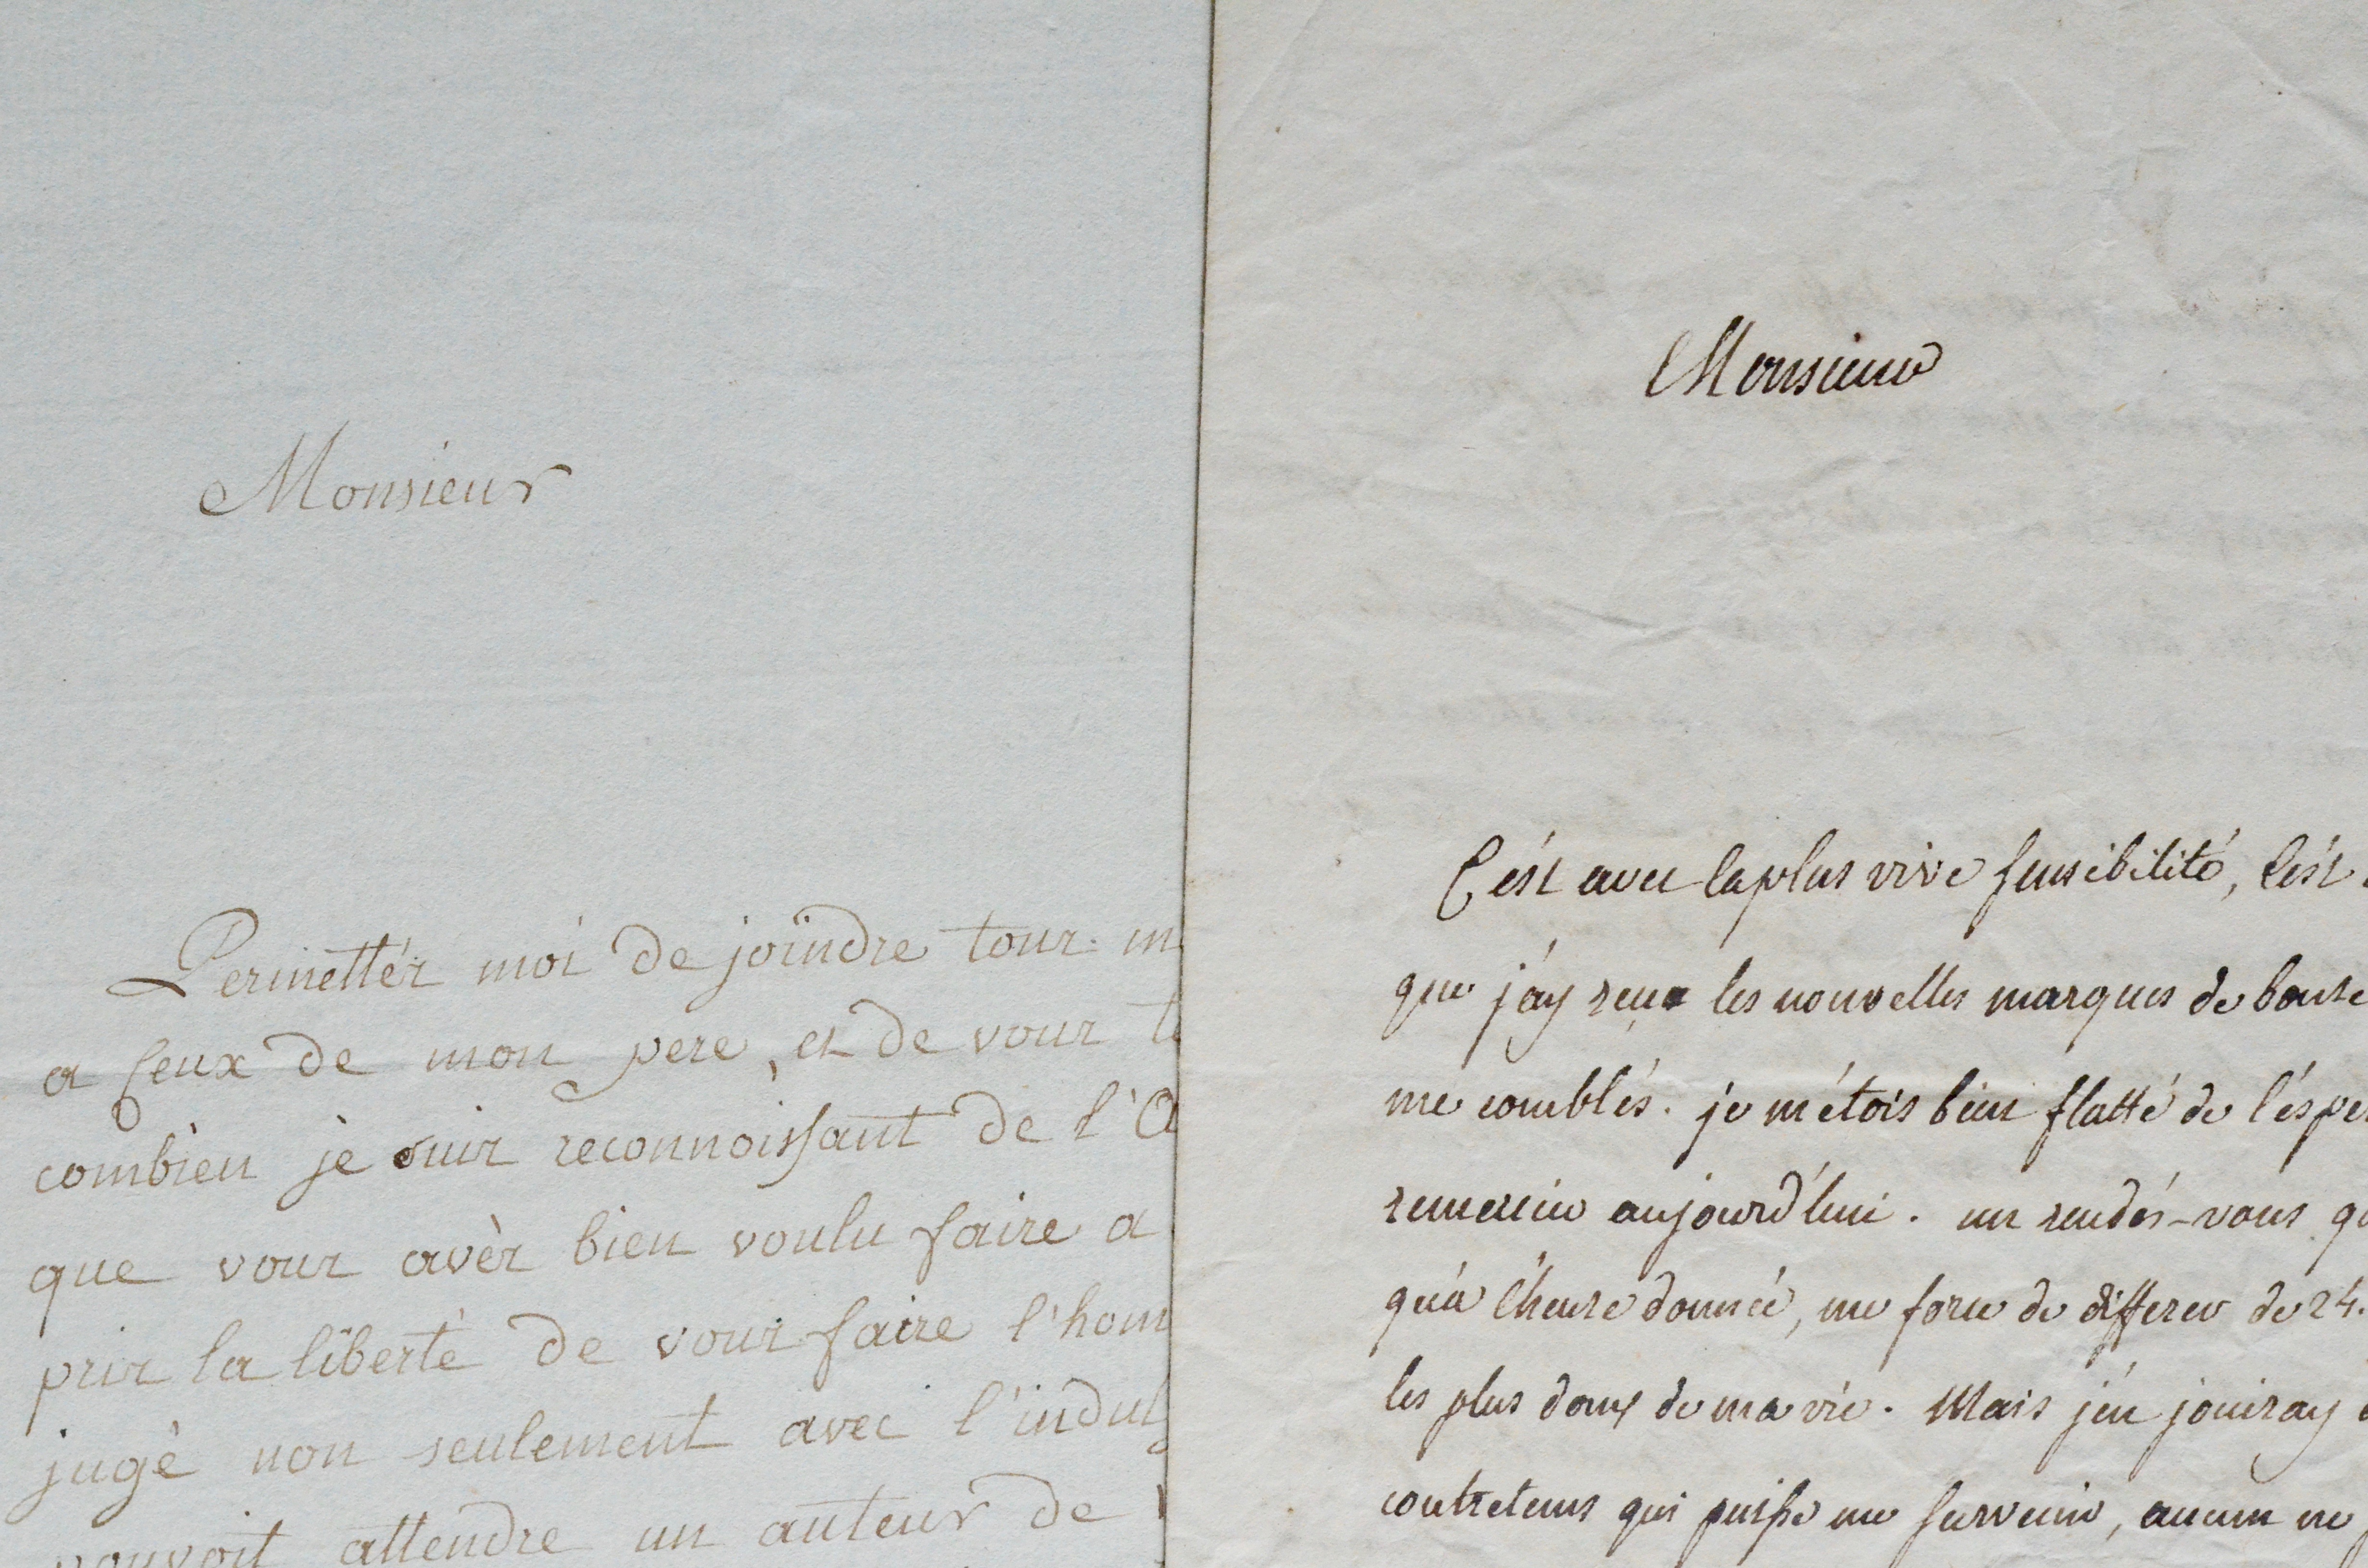 Monsieur
Permettér moi de joindre tour m
a Ceux de mon pere, et de vour t
combien je suir reconnoissant de l'O
que vour avèr bien voulu faire a
prir la liberté de vour faire l'hom
jugé non seulement avec l'indulg
pouvoit attendre un auteur de
Monsieur
C'ést avec la plus vive sensibilité, C'est
que j'ay reçu les nouvelles marques de bonté
me comblés. je m'étois bien flatté de l'éspe
remercier aujourd'hui. un rendés-vous qu
qu'à l'heure donnée, me force de differer de 24.
les plus doux de ma vie. Mais j'én jouiray
contretems qui puisse me survenir, aucun ne